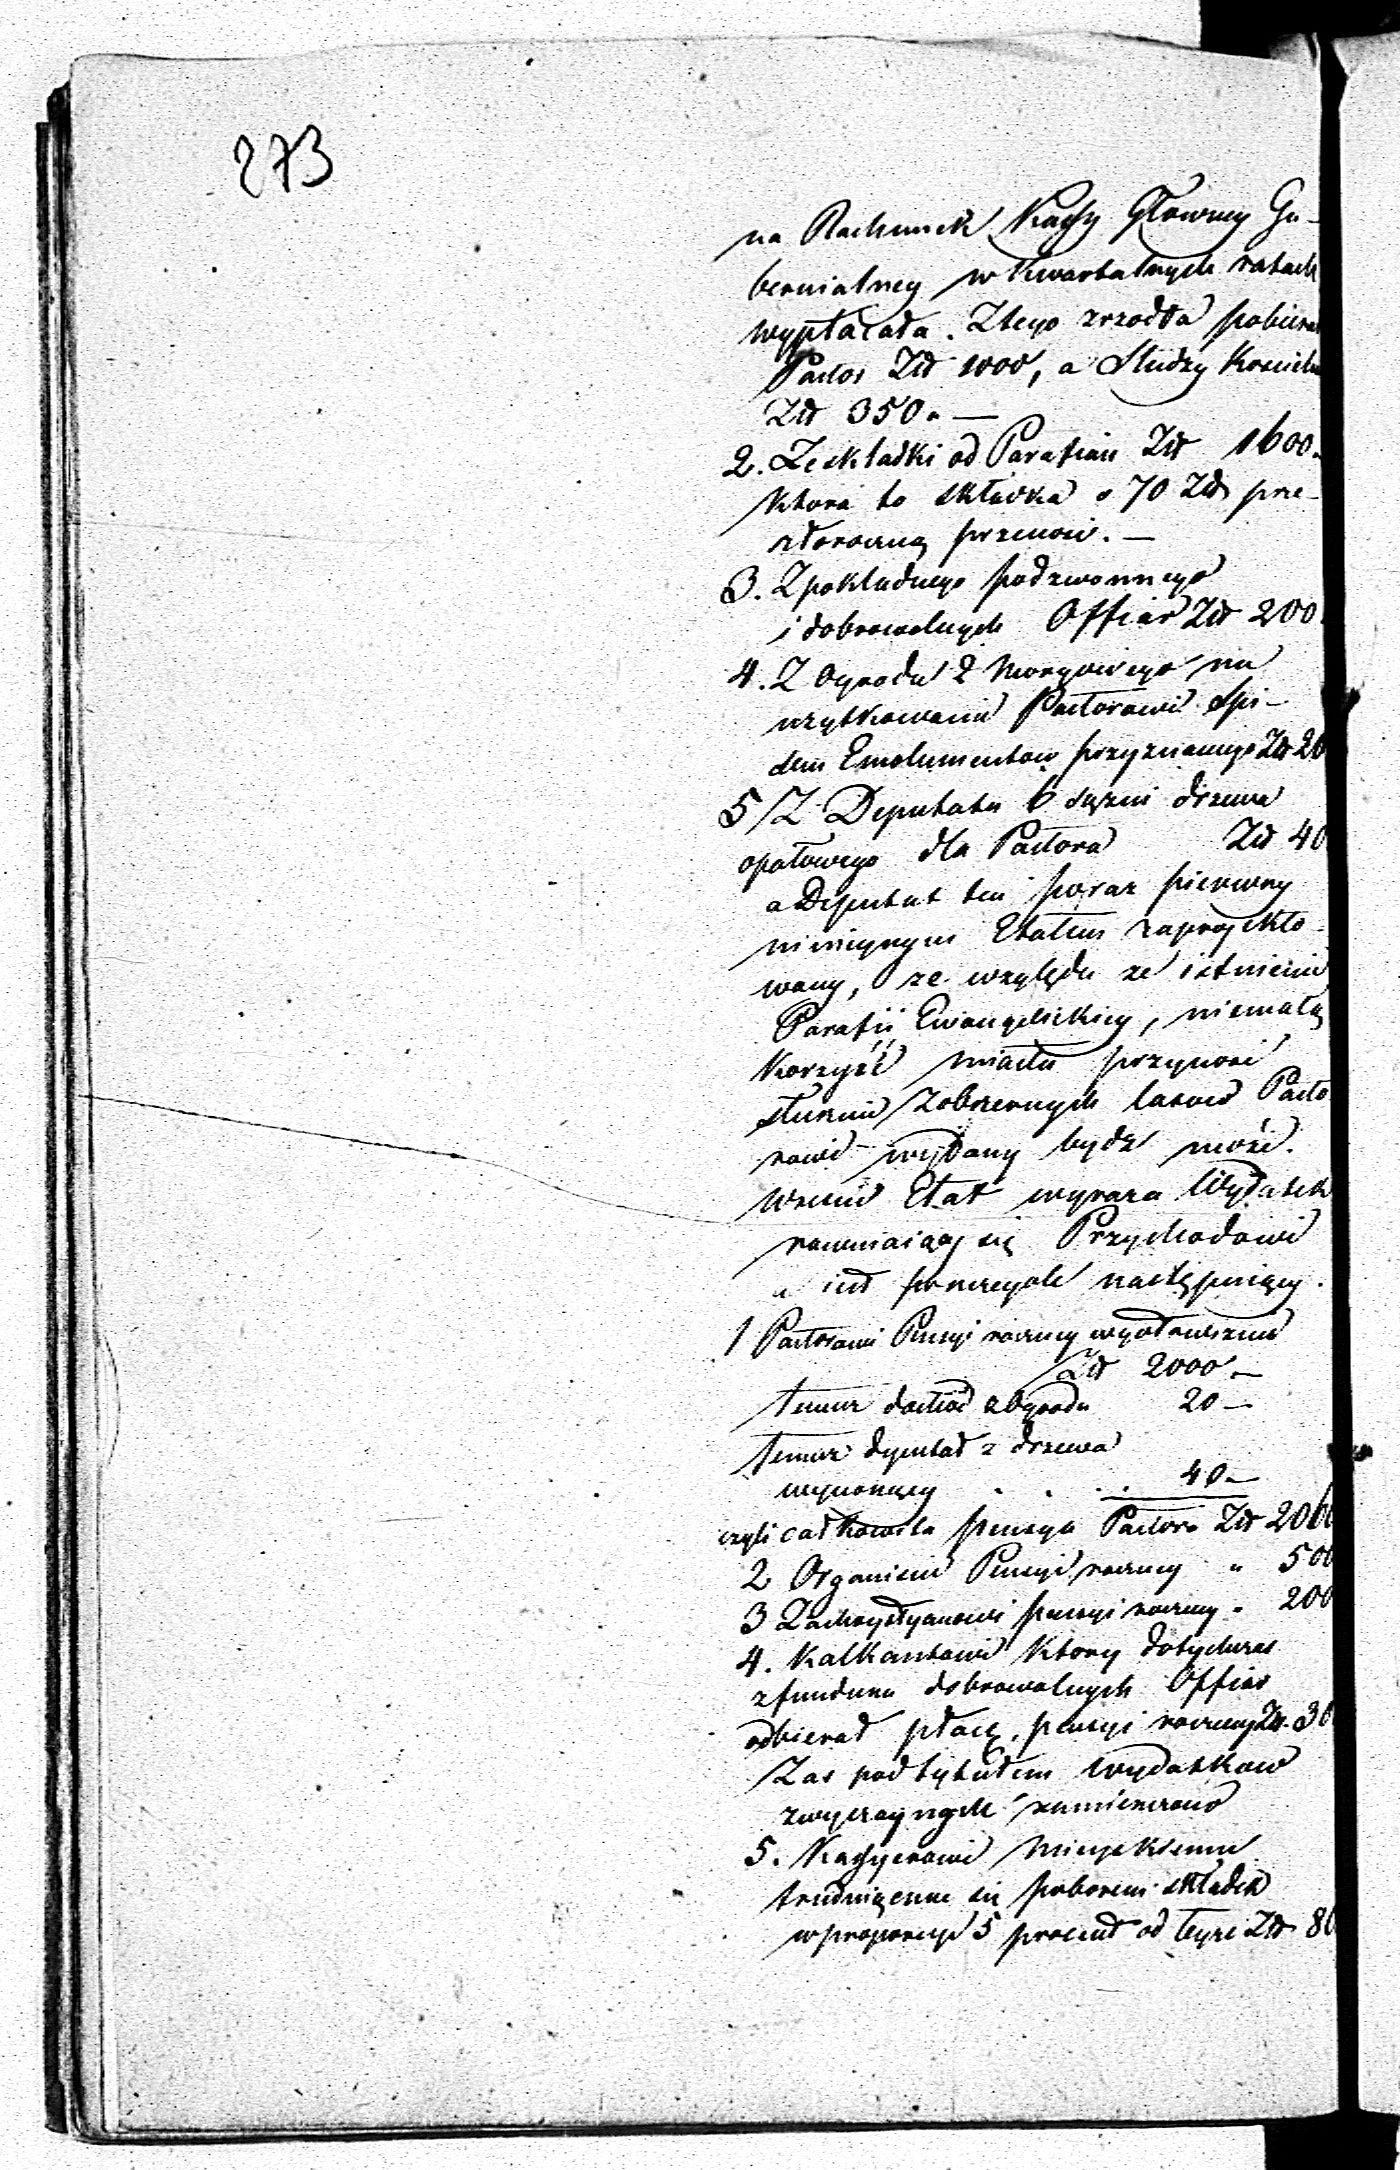 273
na Rachunek Kassy Głowney Gu-
bernialney w kwartalnych ratach
wypłacała. Ztego zrzodła pobierał
Pastor Złł 1000, a Słudzy Koscielni
Złł 350.—
2. Ze składki od Parafian Złł 1600.
ktora to składka o 70 Złł prze-
szłoroczną przenosi.—
3. Z pokładnego podzwonnego
i dobrowolnych Offiar Złł 200.
4. Z Ogrodu 2 Morgowego na
uzytkowanie Pastorowi Spi-
sem Emolumentow przyznanego Złł 20
5/ Z Deputatu 6 sążni drzewa
opałowego dla Pastora Złł 40
a Deputat ten poraz pierwszy
ninieyszym Etatem zaprojekto-
wany, ze względu ze istnienie
Parafii Ewangelickiey, niemałą
korzyść miastu przynosi
słusznie z obszernych lasow Pasto
rowi wydany bydź może.
Wreszcie Etat wyraza Wydatek
rownaiący się Przychodowi
a iest w szczegole następuiący.
1 Pastorowi Pensyi roczney wyrownanie
Złł 2000.—
temuz dochod z Ogrodu 20—
temuz deputat z drzewa
wynoszący . . . . 40—
czyli całkowita pensya Pastora Złł 2060
2 Organiscie Pensyi roczney " 500
3 Zachrystyanowi pensyi roczney " 200
4. Kalkantowi ktory dotychczas
z funduszu dobrowolnych Offiar
odbierał płacę, pensyi roczney Złł. 30
Zas pod tytułem wydatkow
zwyczaynych zamieszczono
5. Kassyerowi Mieyskiemu
trudniącemu się poborem składek
w proporcyi 5 procent od teyże Złł 80